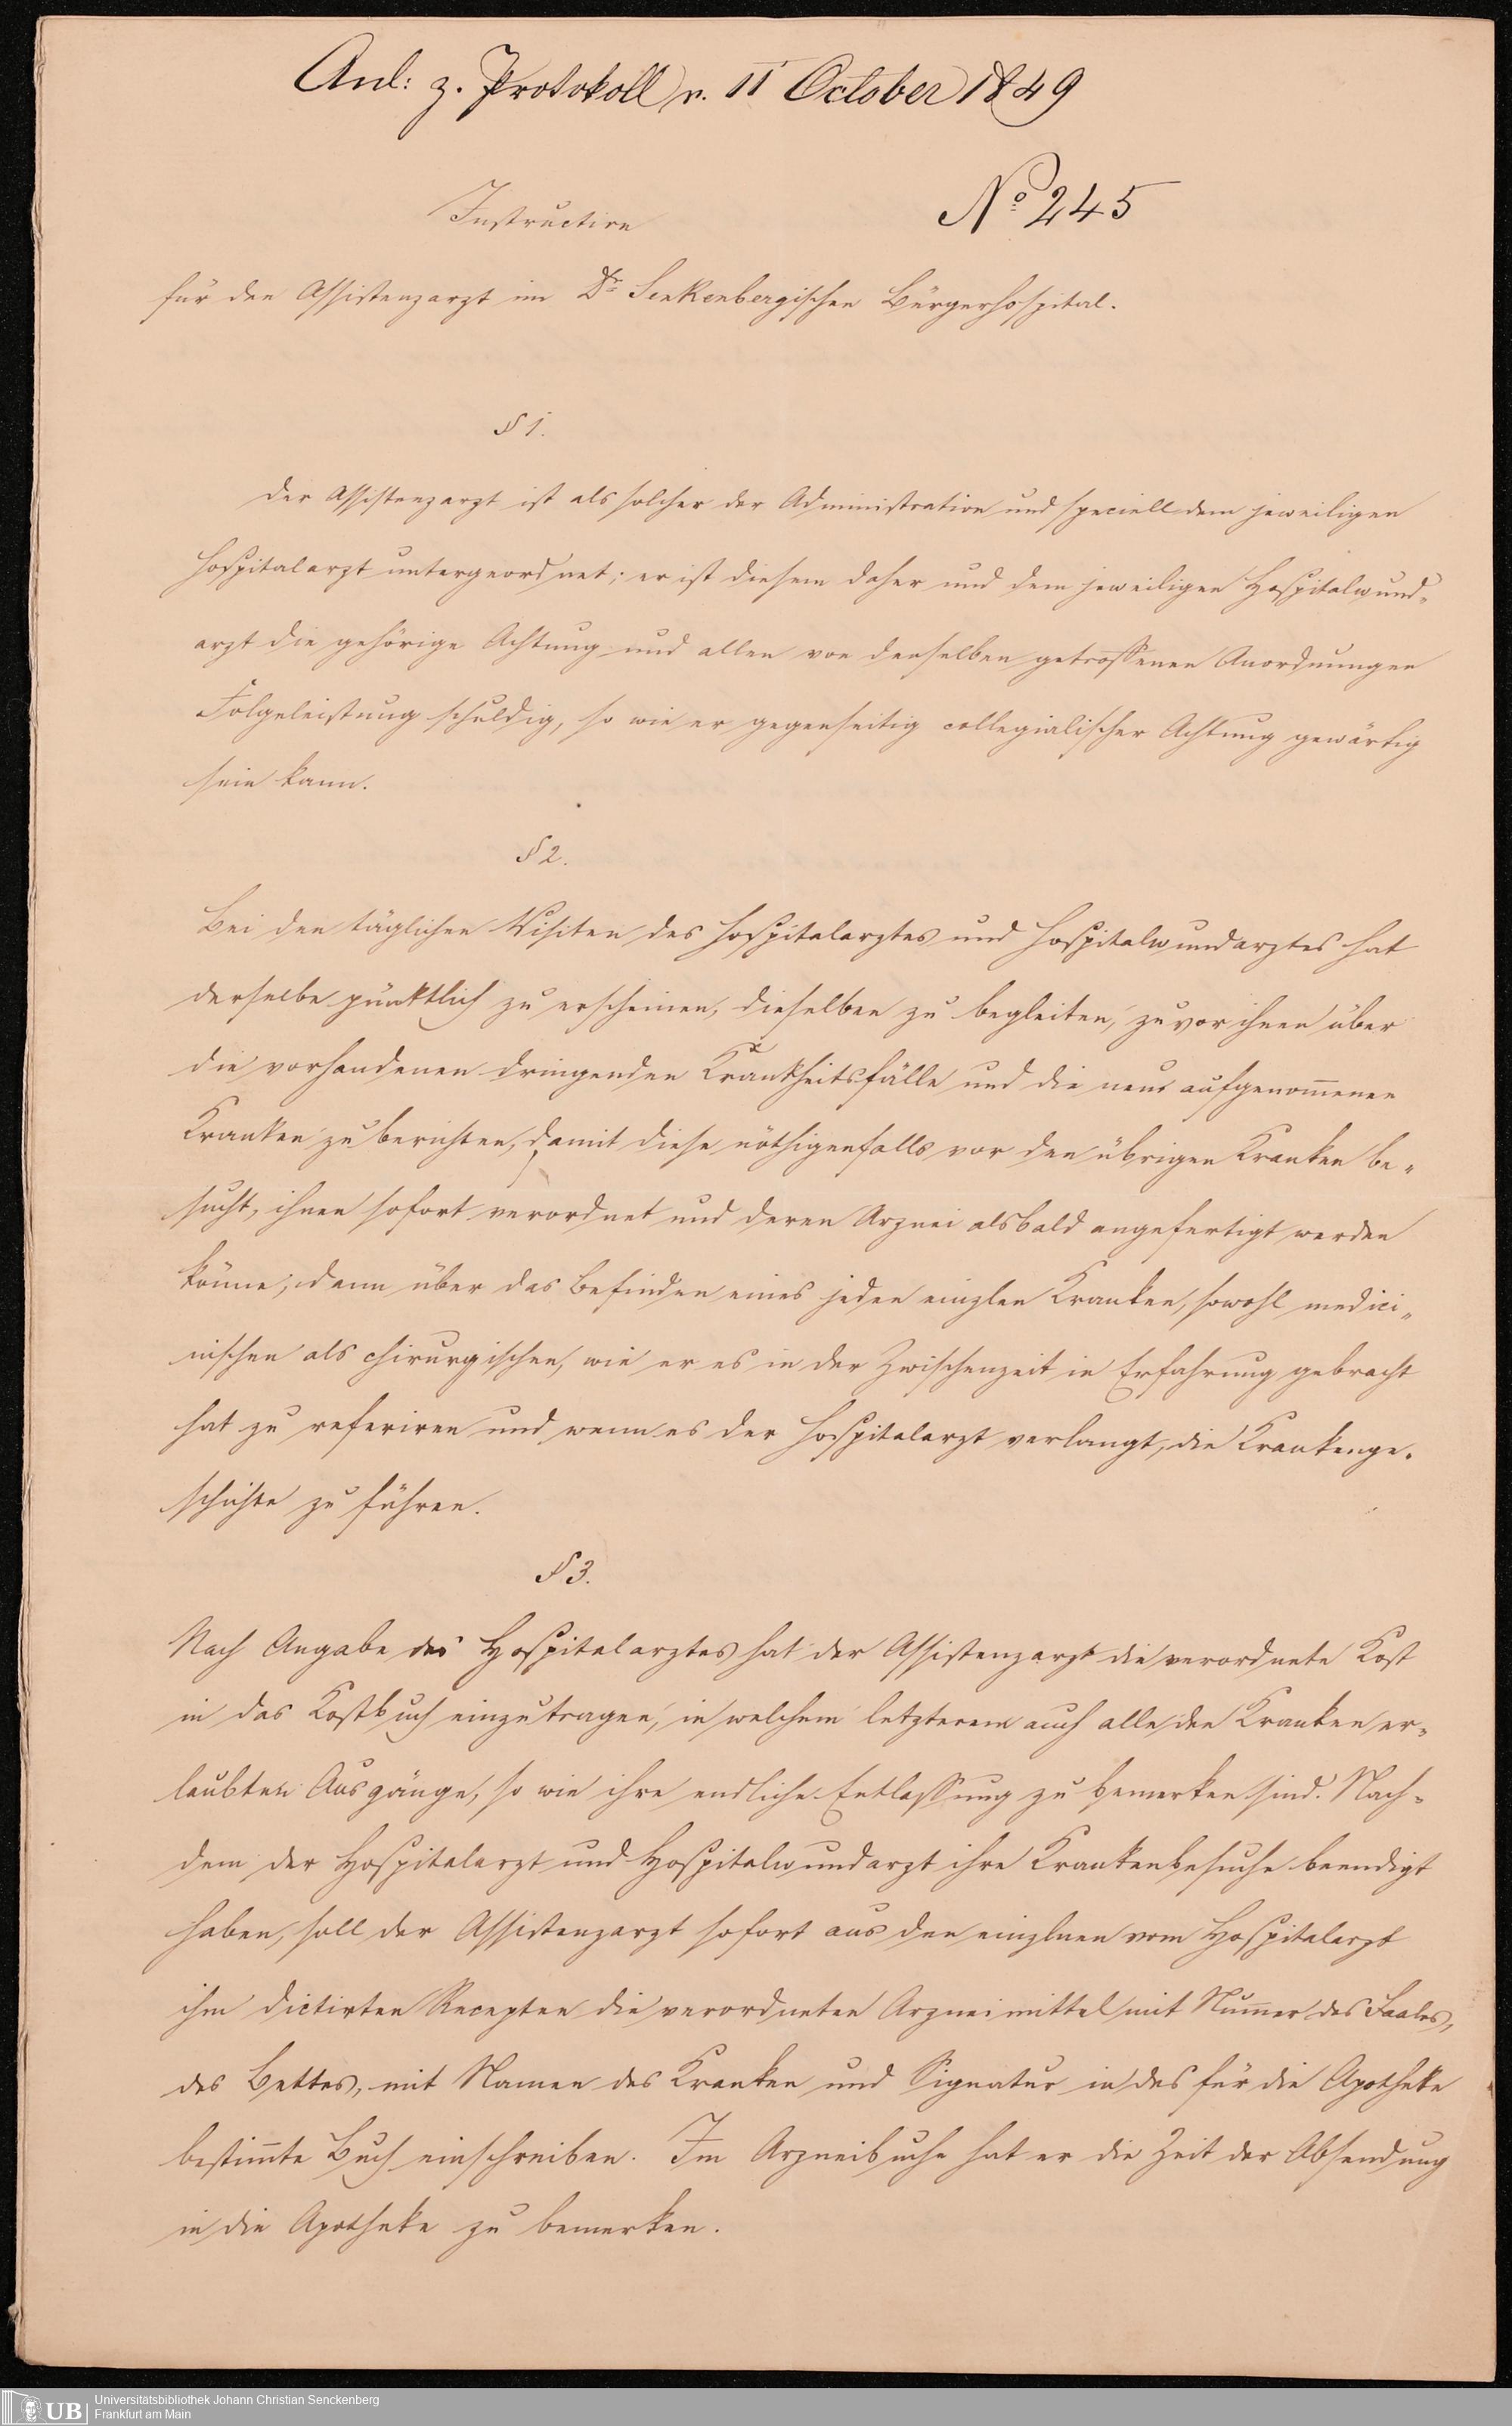 Anl: z. Protokoll v. 11 October 1849
No 245
Instruction
für den Assistenzarzt im Dr Senkenbergischen Bürgerhospital.
§ 1.
Der Assistenzarzt ist als solcher der Administration und speciell dem jeweiligen
Hospitalarzt untergeordnet; er ist diesem daher und dem jeweiligen Hospitalwund-
arzt die gehörige Achtung und allen von denselben getroffenen Anordnungen
Folgeleistung schuldig, so wie er gegenseitig collegialischer Achtung gewärtig
sein kann.
§ 2.
Bei den täglichen Visiten des Hospitalarztes und Hospitalwundarztes hat
derselbe pünktlich zu erscheinen, dieselben zu begleiten, zuvor ihnen über
die vorhandenen dringenden Krankheitsfälle und die neu aufgenom̄enen
Kranken zu berichten, damit diese nöthigenfalls vor den übrigen Kranken be-
sucht, ihnen sofort verordnet und deren Arznei alsbald angefertigt werden
könne; dann über das Befinden eines jeden einzlen Kranken, sowohl medici-
nischen als chirurgischen, wie er es in der Zwischenzeit in Erfahrung gebracht
hat zu referiren und wenn es der Hospitalarzt verlangt, die Krankenge-
schichte zu führen.
§ 3.
Nach Angabe des Hospitalarztes hat der Assistenzarzt die verordnete Kost
in das Kostbuch einzutragen, in welchem letzterem auch alle den Kranken er-
laubten Ausgänge, so wie ihre endliche Entlassung zu bemerken sind. Nach-
dem der Hospitalarzt und Hospitalwundarzt ihre Krankenbesuche beendigt
haben, soll der Assistenzarzt sofort aus den einzlnen vom Hospitalarzt
ihm dictirten Recepten die verordneten Arzneimittel mit Num̄er des Saales,
des Bettes, mit Namen des Kranken und Signatur in das für die Apotheke
bestim̄te Buch einschreiben. Im Arzneibuche hat er die Zeit der Absendung
in die Apotheke zu bemerken.
UB
Universitätsbibliothek Johann Christian Senckenberg
Frankfurt am Main